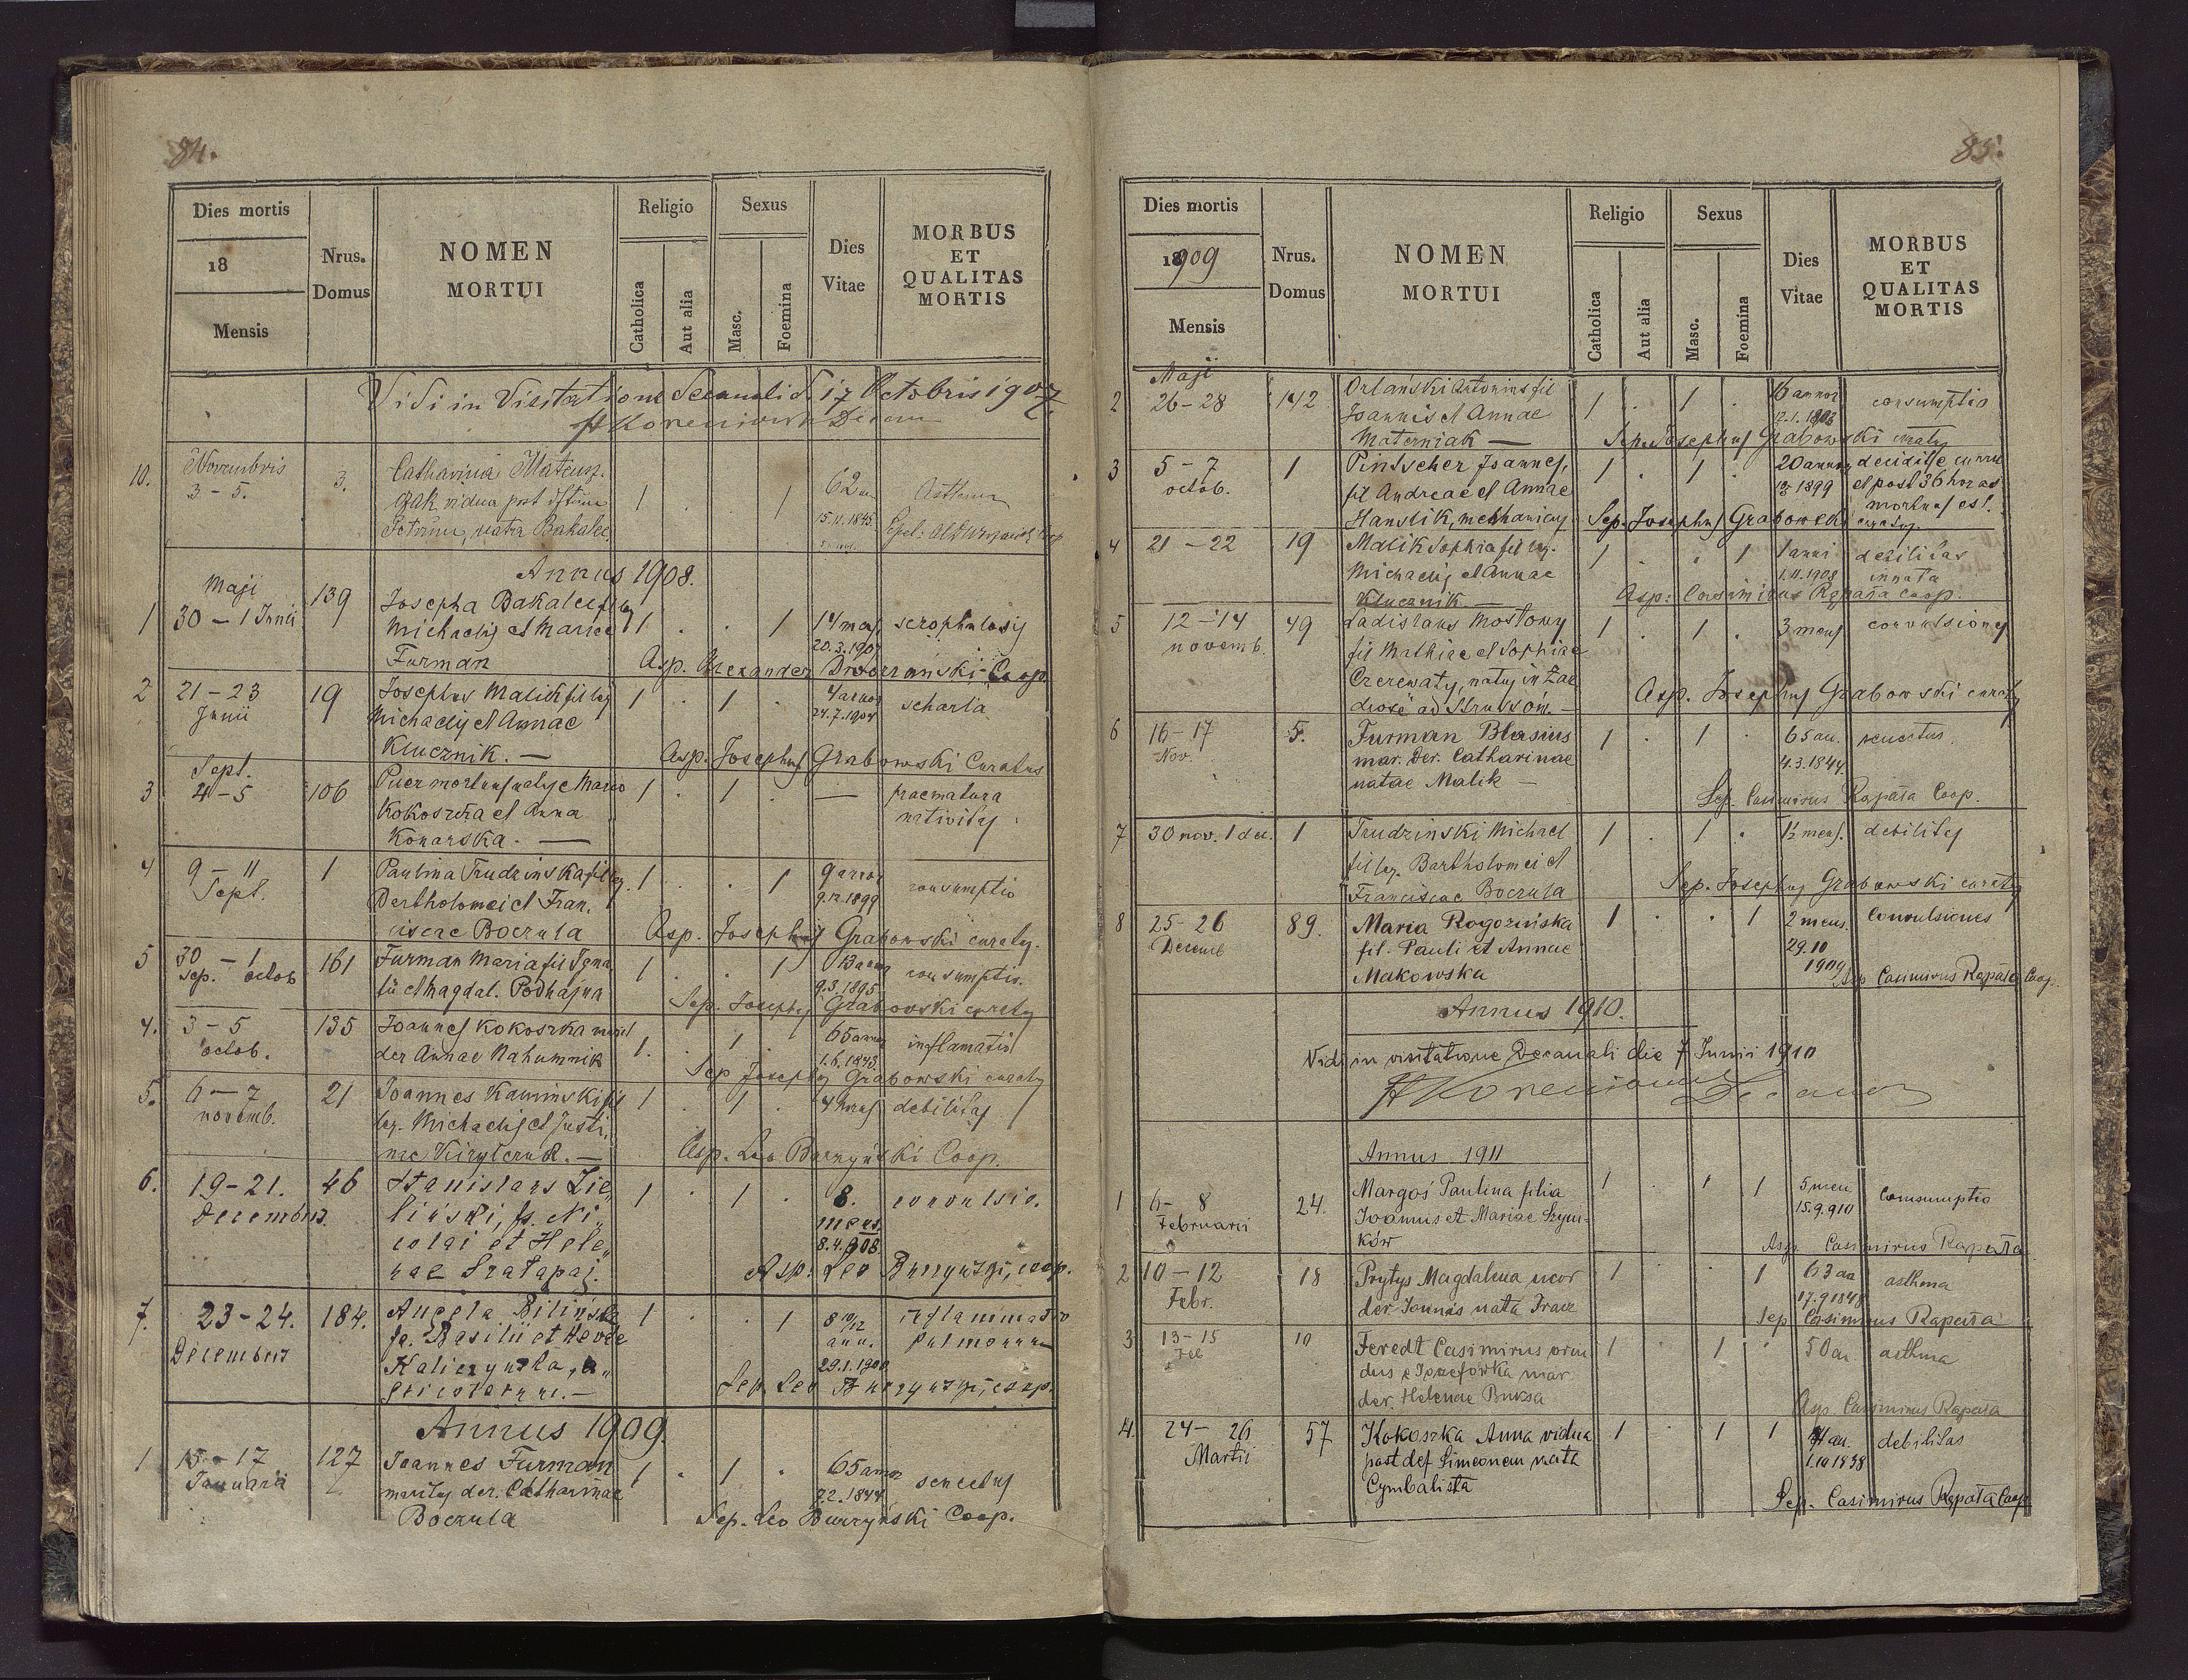 84.
Dies mortis
18
Mensis
Nrus.
Domus
NOMEN
MORTUI
Religio
Catholica
Aut alia
Sexus
Masc.
Foemina
Dies
Vitae
MORBUS
ET
QUALITAS
MORTIS
Vidi in Visitatione Decanali d. 17 Octobris 1907
10. Novembris
3 - 5. 3.
Catharina
vidua post
nata Bakalec
1 . . 1
62 an
15.11.1845
Asthma
Annus 1908.
1 Maji
30 - 1 Junii 139
Josepha Bakalec fil leg
Michaelis et Mariae
Furman
1 . . 1
14 mens.
20.3.1907
scrophulosis
Asp. Alexander Dworzanski Coop
2 21 - 23
Junii 19
Josephus Malik fil leg
Michaelis et Annae
Klucznik. —
1 . 1 .
4 annor
24.7.1904
scharla
Asp. Josephus Grabowski Curatus
3 Sept.
4 - 5 106
Puer mortuus natus e Marco
Kokoszka et Anna
Konarska. —
1 . 1 . —
praematura
nativitas
4 9 - 11
Sept. 1
Paulina Trudzinska fil leg.
Bartholomei et Fran.
ciscae Boczula
1 . . 1
9 annor
9.12.1899
consumptio
Asp. Josephus Grabowski curatus.
5 30 - 1
Sep. octob 161
Furman Maria fil Igna
tii et Magdal. Podhajna
1 . . 1
13 annor
9.3.1895
consumptio.
Sep. Josephus Grabowski curatus
4. 3 - 5
octob. 135
Joannes Kokoszka
der Annae Nahumnik
1. . 1 .
65 annor
1.6.1843
inflamatio
Sep Josephus Grabowski curatus
5. 6 - 7
novemb. 21
Joannes Kaminski fil
leg. Michaelis et Justi,
nae Kirylczuk. —
1 . 1 .
4 horas
debilitas
Asp. Leo Buczyński Coop.
6. 19-21.
Decembris. 46
Stanislaus Zie„
liński, fs. Ni„
colai et Hele„
nae Szatapaj.
1 . 1 .
8.
mens.
8.4.908
convulsio.
Asp. Leo coop.
7. 23-24.
Decembris 184.
Angela Bilińska
fa. Basilii et
1 . . 1
8 10/12
ann.
29.1.1900
inflammatio
pulmonum
Sep. Leo coop.
Annus 1909.
1 15 - 17
Januarii 127
Joannes Furman
maritus der. Catharinae
Boczula
1 . 1 .
65 annor
7.2.1844
senectus
Sep. Leo Buczyński Coop.
85.
Dies mortis
1909
Mensis
Nrus.
Domus
NOMEN
MORTUI
Religio
Catholica
Aut alia
Sexus
Masc.
Foemina
Dies
Vitae
MORBUS
ET
QUALITAS
MORTIS
2 Maji
26 - 28 142
Orlański Antonius fil
Joannis et Annae
Materniak —
1 . 1 .
6 annor
12.1.1903
consumptio
Sep. Josephus Grabowski curatus
3 5 - 7
octob. 1
Pintscher Joannes,
fil Andreae et Annae
Hanslik, mechanicus
1 . 1 .
20 annor
1899
decidit e curru
et post 36 horas
mortuus est.
Sep. Josephus Grabowski curatus.
4 21 - 22 19
Malik Sophia fil leg.
Michaelis et Annae
Klucznik —
1 . . 1
1 anni
1.11.1908
debilitas
innata
Asp: Casimirus Rapała Coop.
5 12 - 14
novemb. 49
Ladislaus Mostowy
fil Mathiae et Sophiae
Czerewaty, natus in Zaz
drość ad Strusów. —
1 . 1 .
3 mens
convulsiones
Asp. Josephus Grabowski curatus
6 16 - 17
Nov. 5.
Furman Blasius
mar. der. Catharinae
natae Malik —
1 . 1 .
65 an.
4.3.1844.
senectus
Sep. Casimirus Rapała Coop.
7 30 nov. 1 dec. 1
Trudzinski Michael
fil leg. Bartholomei et
Franciscae Boczula
1 . 1 .
1½ mens.
debilitas
Sep. Josephus Grabowski curatus
8 25 - 26
Decemb 89.
Maria Rogozińska
fil. Pauli et Annae
Makowska
1 . . 1
2 mens.
29.10
1909
Convulsiones
Asp Casimirus Rapała Coop.
Annus 1910.
Vidi in visitatione Decanali die 7 Junii 1910
Annus 1911
1 6 - 8
Februarii 24.
Margoś Paulina filia
Joannis et Mariae Szym-
ków
1 . 1 1
5 men
15.9.910
Comsumptio
Asp. Casimirus Rapała
2 10 - 12
Febr. 18
Prytys Magdalena uxor
der Joannis nata Fracz
1 . . 1
63 an
17.9 1848
asthma
Sep Casimirus Rapała
3 13 - 15
Feb 10
Feredt Casimirus oriun
dus e Iozefówka mar
der. Helenae Buksa
1 . 1 .
50 an
asthma
Asp. Casimirus Rapała
4. 24 - 26
Martii 57
Kokoszka Anna vidua
post def Simeonem nata
Cymbalista
1 1 1
an.
1.10 1838
debilitas
Sep. Casimirus Rapała Coop